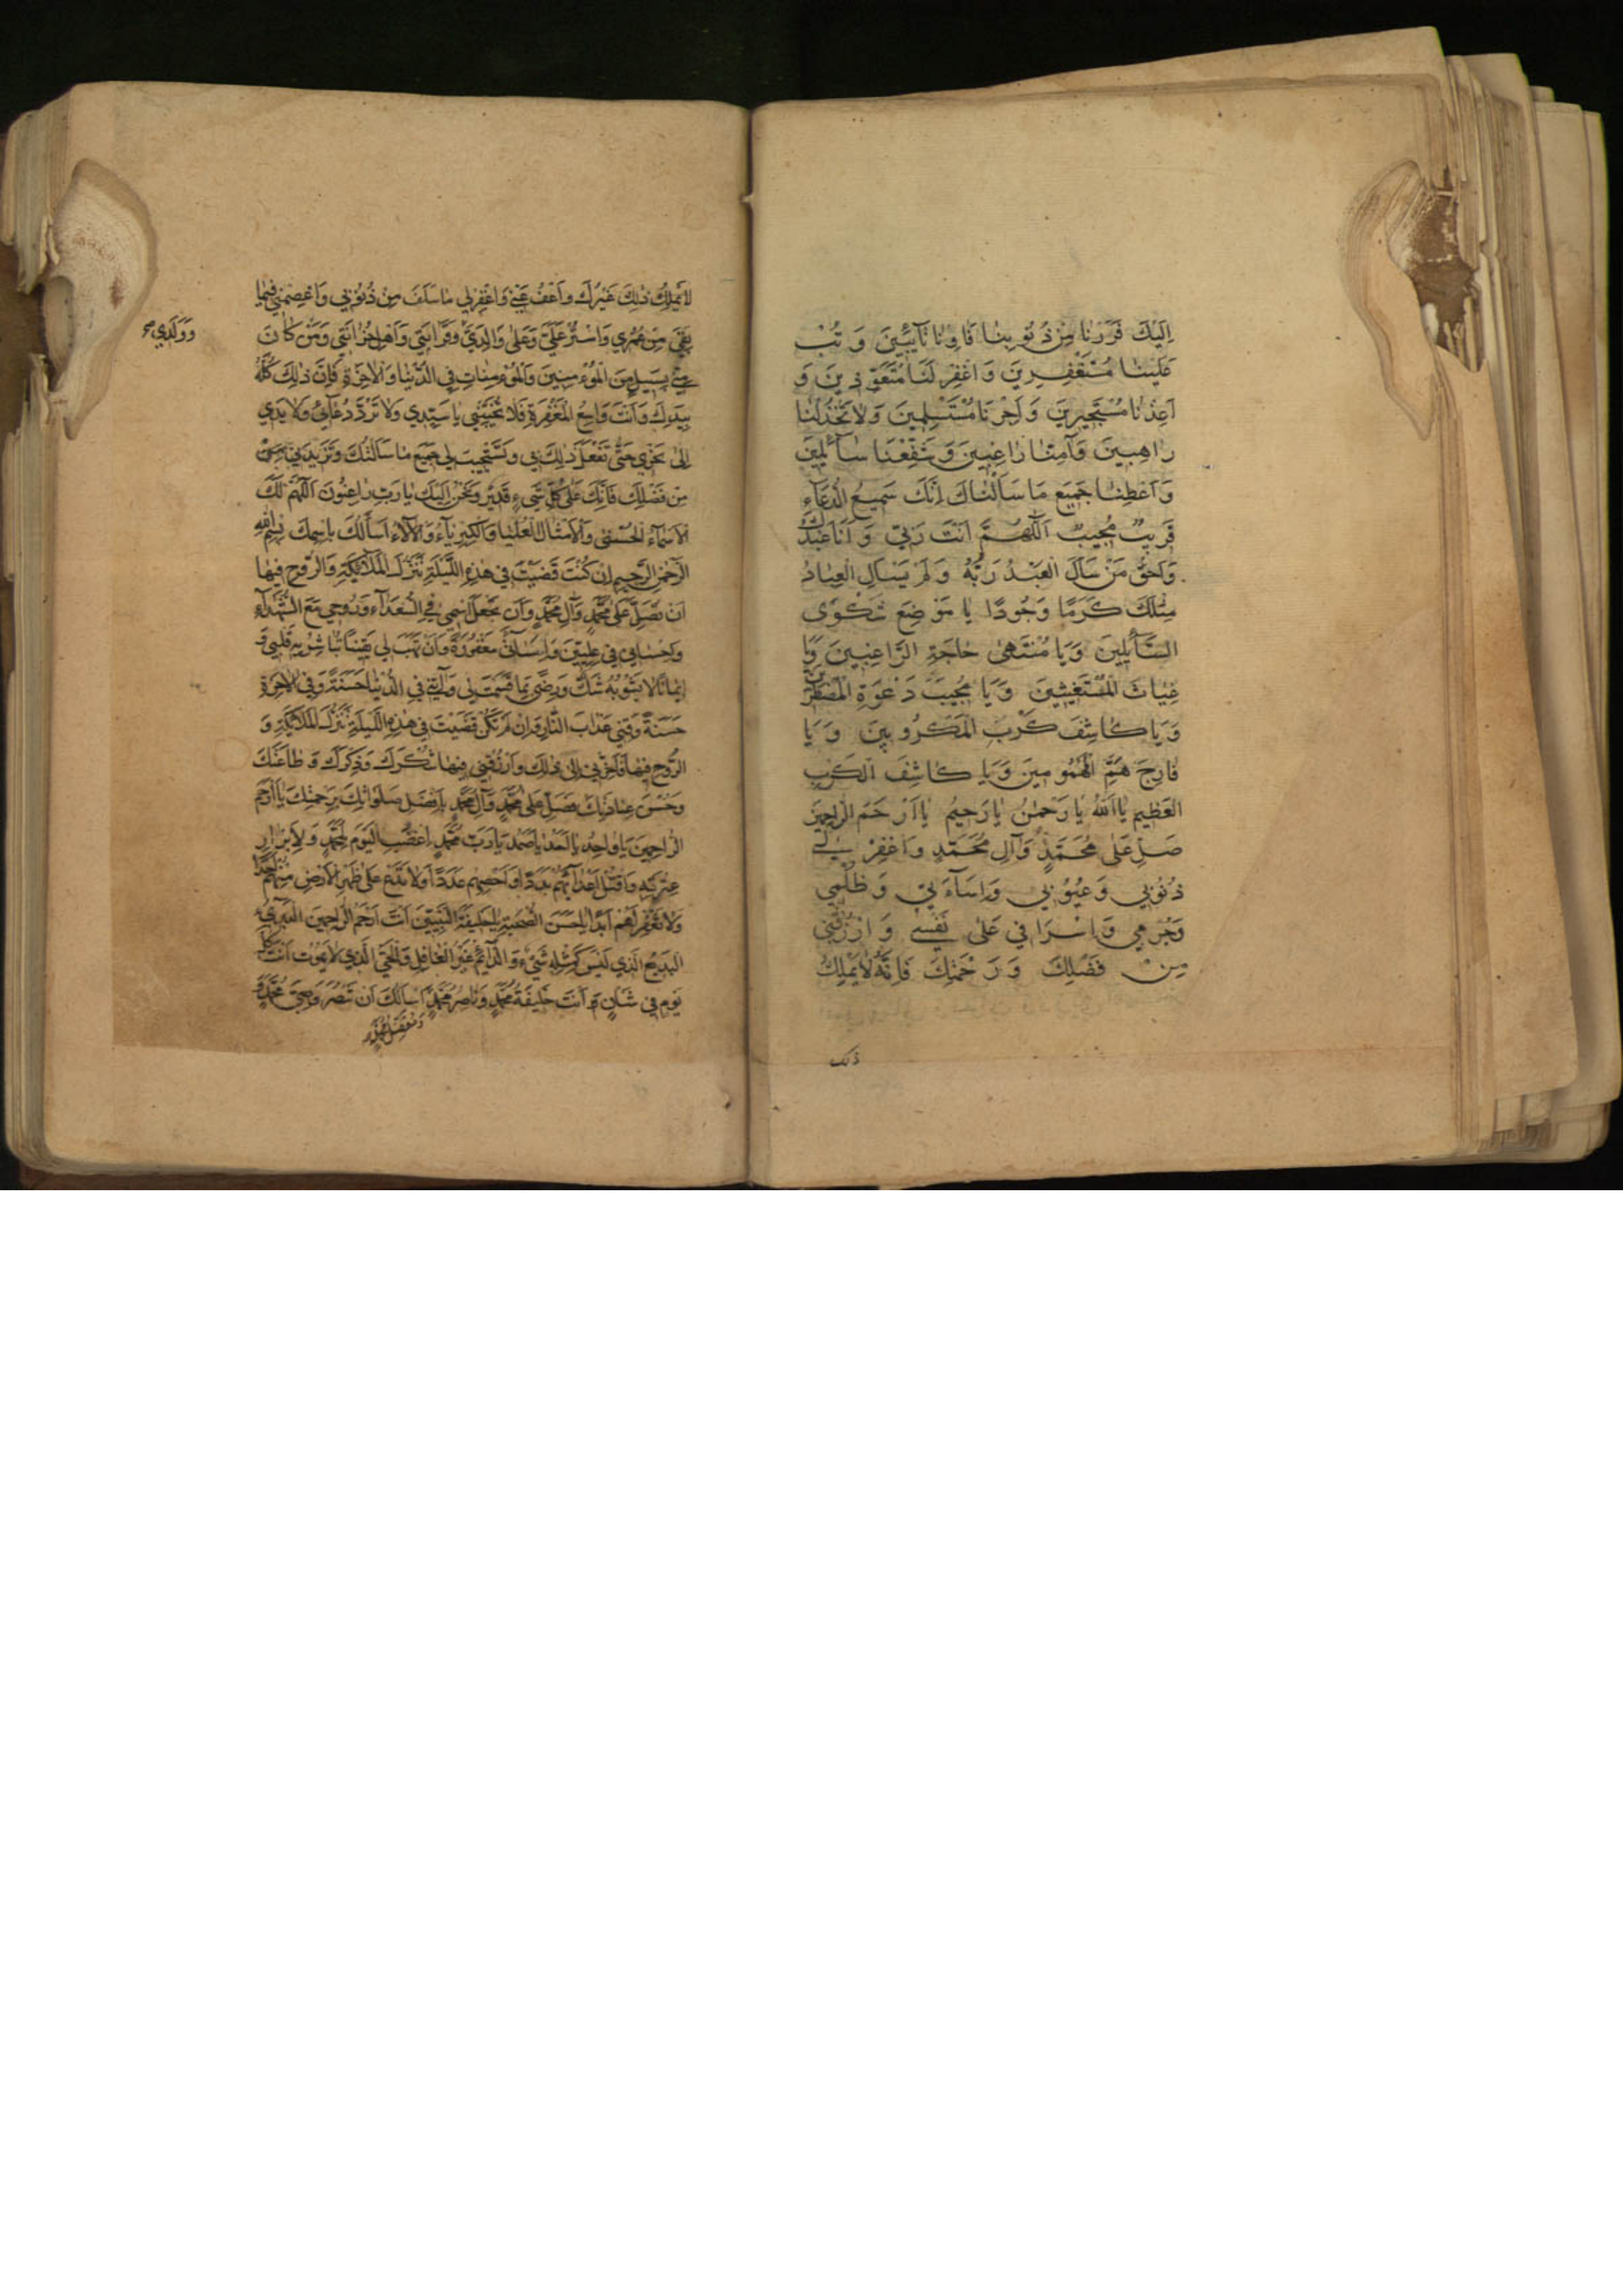 اِلَيْكَ فَرَرْنَا مِنْ ذُنُوبِنَا فَاوِنَا تَآئِبِينَ وَ تُبْ
عَلَيْنَا مُسْتَغْفِرِينَ وَ اغْفِرْ لَنَا مُتَعَوِّذِينَ وَ
اَعِذْنَا مُسْتَجِيرِينَ وَ اَجِرْنَا مُسْتَسْلِمِينَ وَلَا تَخْذُلْنَا
رَاهِبِينَ وَآمِنَّا رَاغِبِينَ وَشَفِّعْنَا سَآئِلِينَ
وَ اَعْطِنَا جَمِيعَ مَا سَاَلْنَاكَ اِنَّكَ سَمِيعُ الدُّعَآءِ
قَرِيبٌ مُجِيبٌ اَللّٰهُمَّ اَنْتَ رَبِّي وَ اَنَا عَبْدُكَ
وَاَحَقُّ مَنْ سَاَلَ الْعَبْدُ رَبَّهُ وَلَمْ يَسْاَلِ الْعِبَادُ
مِثْلَكَ كَرَمًا وَجُودًا يَا مَوْضِعَ شَكْوَى
السَّآئِلِينَ وَيَا مُنْتَهىٰ حَاجَةِ الرَّاغِبِينَ وَيَا
غِيَاثَ الْمُسْتَغِيثِينَ وَيَا مُجِيبَ دَعْوَةِ الْمُضْطَرِّينَ
وَيَا كَاشِفَ كَرْبِ الْمَكْرُوبِينَ وَيَا
فَارِجَ هَمِّ الْمَهْمُومِينَ وَيَا كَاشِفَ الْكَرْبِ
الْعَظِيمِ يَا اَللهُ يَا رَحْمٰنُ يَا رَحِيمُ يَا اَرْحَمَ الرَّاحِمِينَ
صَلِّ عَلىٰ مُحَمَّدٍ وَآلِ مُحَمَّدٍ وَ اغْفِرْ لِي
ذُنُوبِي وَعُيُوبِي وَاِسَآءَتِي وَ ظُلْمِي
وَجُرْمِي وَاِسْرَافِي عَلىٰ نَفْسِي وَ ارْزُقْنِي
مِنْ فَضْلِكَ وَ رَحْمَتِكَ فَاِنَّهُ لَا يَمْلِكُ
ذلك
لَا يَمْلِكُ ذٰلِكَ غَيْرُكَ وَ اعْفُ عَنِّي وَ اغْفِرْ لِي مَا سَلَفَ مِنْ ذُنُوبِي وَ اعْصِمْنِي فِيمَا
بَقِيَ مِنْ عُمْرِي وَ اسْتُرْ عَلَيَّ وَعَلىٰ وَالِدَيَّ وَقَرَابَتِي وَ اَهْلِ حُزَانَتِي وَمَنْ كَانَ
وَوَلَدِي صح
مِنِّي بِسَبِيلٍ مِنَ الْمُؤْمِنِينَ وَالْمُؤْمِنَاتِ فِي الدُّنْيَا وَالْاٰخِرَةِ فَاِنَّ ذٰلِكَ كُلَّهُ
بِيَدِكَ وَ اَنْتَ وَاسِعُ الْمَغْفِرَةِ فَلَا تُخَيِّبْنِي يَا سَيِّدِي وَلَا تَرُدَّ دُعَآئِي وَلَا يَدِي
اِلىٰ نَحْرِي حَتّىٰ تَفْعَلَ ذٰلِكَ بِي وَ تَسْتَجِيبَ لِي جَمِيعَ مَا سَاَلْتُكَ وَتَزِيدَنِي
مِنْ فَضْلِكَ فَاِنَّكَ عَلىٰ كُلِّ شَيْءٍ قَدِيرٌ وَنَحْنُ اِلَيْكَ يَا رَبِّ رَاغِبُونَ اَللّٰهُمَّ لَكَ
الْاَسْمَآءُ الْحُسْنىٰ وَالْاَمْثَالُ الْعُلْيَا وَالْكِبْرِيَآءُ وَالْاٰلَاءُ اَسْاَلُكَ بِاسْمِكَ بِسْمِ اللهِ
الرَّحْمٰنِ الرَّحِيمِ اِنْ كُنْتَ قَضَيْتَ فِي هٰذِهِ اللَّيْلَةِ تَنَزُّلَ الْمَلَآئِكَةِ وَالرُّوحِ فِيهَا
اَنْ تُصَلِّيَ عَلىٰ مُحَمَّدٍ وَآلِ مُحَمَّدٍ وَ اَنْ تَجْعَلَ اسْمِي فِي السُّعَدَآءِ وَرُوحِي مَعَ الشُّهَدَآءِ
وَاِحْسَانِي فِي عِلِّيِّينَ وَاِسَآئَتِي مَغْفُورَةً وَ اَنْ تَهَبَ لِي يَقِينًا تُبَاشِرُ بِهِ قَلْبِي وَ
اِيمَانًا لَا يَشُوبُهُ شَكٌّ وَ رِضًى بِمَا قَسَمْتَ لِي وَ آتِنِي فِي الدُّنْيَا حَسَنَةً وَفِي الْاٰخِرَةِ
حَسَنَةً وَقِنِي عَذَابَ النَّارِ وَاِنْ لَمْ تَكُنْ قَضَيْتَ فِي هٰذِهِ اللَّيْلَةِ تَنَزُّلَ الْمَلَآئِكَةِ وَ
الرُّوحِ فِيهَا فَاَخِّرْنِي اِلىٰ ذٰلِكَ وَ ارْزُقْنِي فِيهَا شُكْرَكَ وَذِكْرَكَ وَ طَاعَتَكَ
وَحُسْنَ عِبَادَتِكَ فَصَلِّ عَلىٰ مُحَمَّدٍ وَآلِ مُحَمَّدٍ بِاَفْضَلِ صَلَوَاتِكَ بِرَحْمَتِكَ يَا اَرْحَمَ
الرَّاحِمِينَ يَا وَاحِدُ يَا اَحَدُ يَا صَمَدُ يَا رَبَّ مُحَمَّدٍ اِغْضَبِ الْيَوْمَ لِمُحَمَّدٍ وَلِاَبْرَارِ
عِتْرَتِهِ وَ اقْتُلْ اَعْدَآئَهُمْ بَدَدًا وَ اَحْصِهِمْ عَدَدًا وَلَا تَدَعْ عَلىٰ ظَهْرِ الْاَرْضِ مِنْهُمْ اَحَدًا
وَلَا تَغْفِرْ لَهُمْ اَبَدًا يَا حَسَنَ الصُّحْبَةِ يَا خَلِيفَةَ النَّبِيِّينَ اَنْتَ اَرْحَمُ الرَّاحِمِينَ الْمُبْدِئُ
الْبَدِيعُ الَّذِي لَيْسَ كَمِثْلِهِ شَيْءٌ وَ الدَّآئِمُ غَيْرُ الْغَافِلِ وَالْحَيُّ الَّذِي لَا يَمُوتُ اَنْتَ كُلَّ
يَوْمٍ فِي شَأْنٍ وَ اَنْتَ خَلِيفَةُ مُحَمَّدٍ وَ نَاصِرُ مُحَمَّدٍ اَسْاَلُكَ اَنْ تَنْصُرَ وَصِيَّ مُحَمَّدٍ وَ